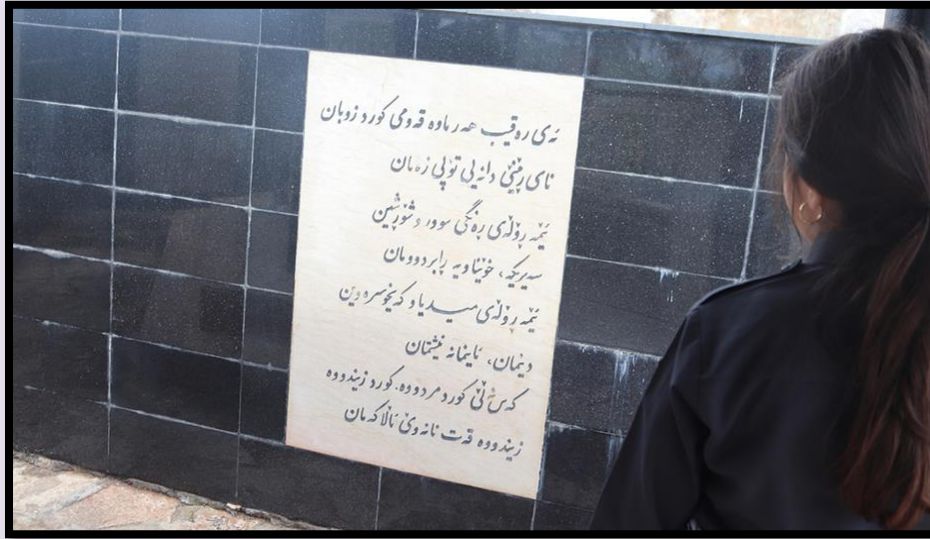 ئەی رەقیب هەر ماوە قەومی کورد زوبان
نای رمێنێ دانەیی تۆپی زەمان
ئێمە ڕۆڵەی ڕەنگی سوور و شۆڕشین
سەیرکە، خوێناویە ڕابردوومان
ئێمە ڕۆڵەی میدیا و کەیخوسرەوین
دینمان، ئایمانە نیشتمان
کەس نەڵێ کورد مردووە. کورد زیندووە
زیندووە قەت نانەوێ ئاڵاکەمان